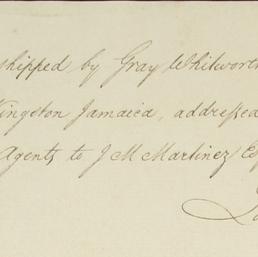 shipped by Gray Whitworth
Kingston Jamaica, addressed
Agents to J M Martinez Esq